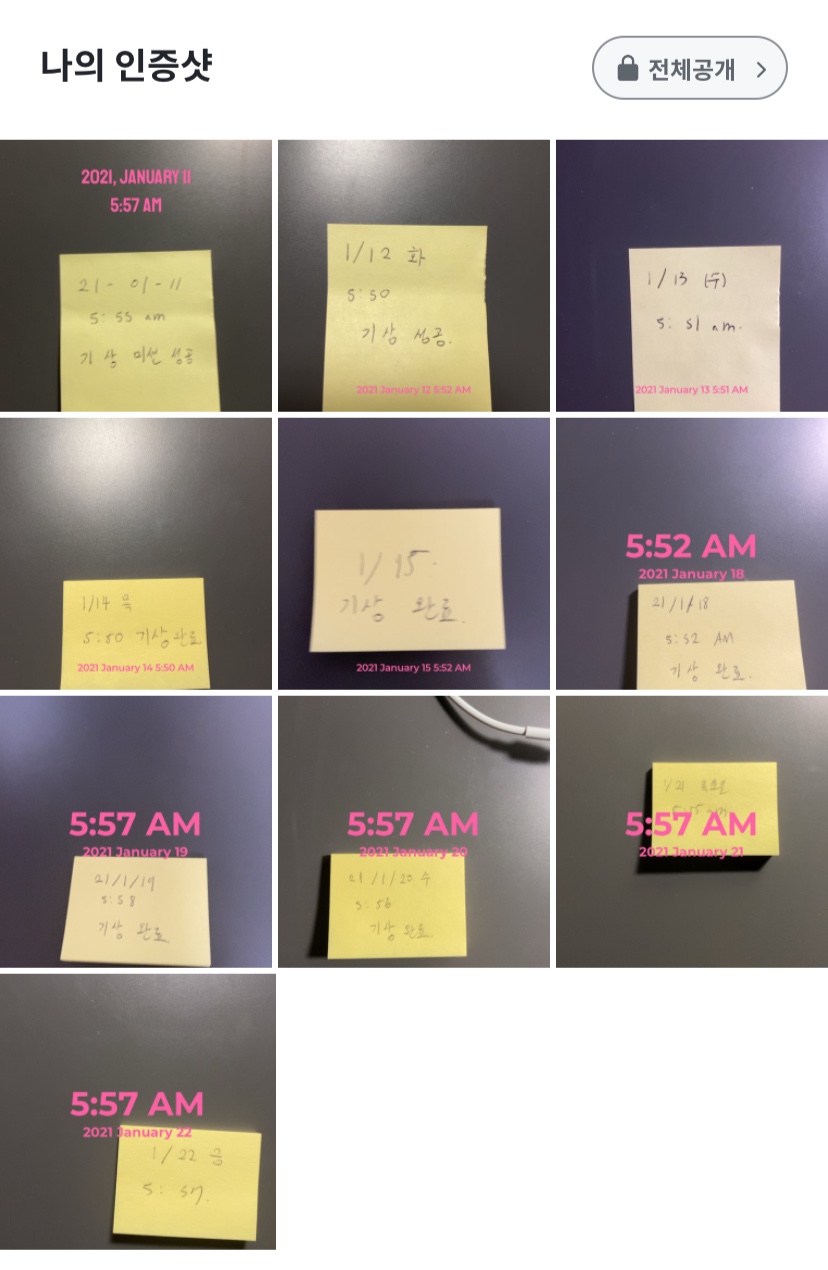 나의 인증샷
전체공개
2021, JANUARY 11
5:57 AM
21- 01-11
5:55 am
기상 미션 성공
1/12 화
5:50
기상 성공.
2021 January 12 5:52 AM
1/13 (수)
5:51 am.
2021 January 13 5:51 AM
1/14 목
5:50 기상완료
2021 January 14 5:50 AM
1/15.
기상 완료.
2021 January 15 5:52 AM
5:52 AM
2021 January 18
21/1/18
5:52 AM
기상 완료.
5:57 AM
2021 January 19
21/1/19
5:58
기상 완료
5:57 AM
2021 January 20
21/1/20 수
5:56
기상 완료
1/21 목요일
5:57 AM
2021 January 21
5:57 AM
2021 January 22
1/22 금
5:57.